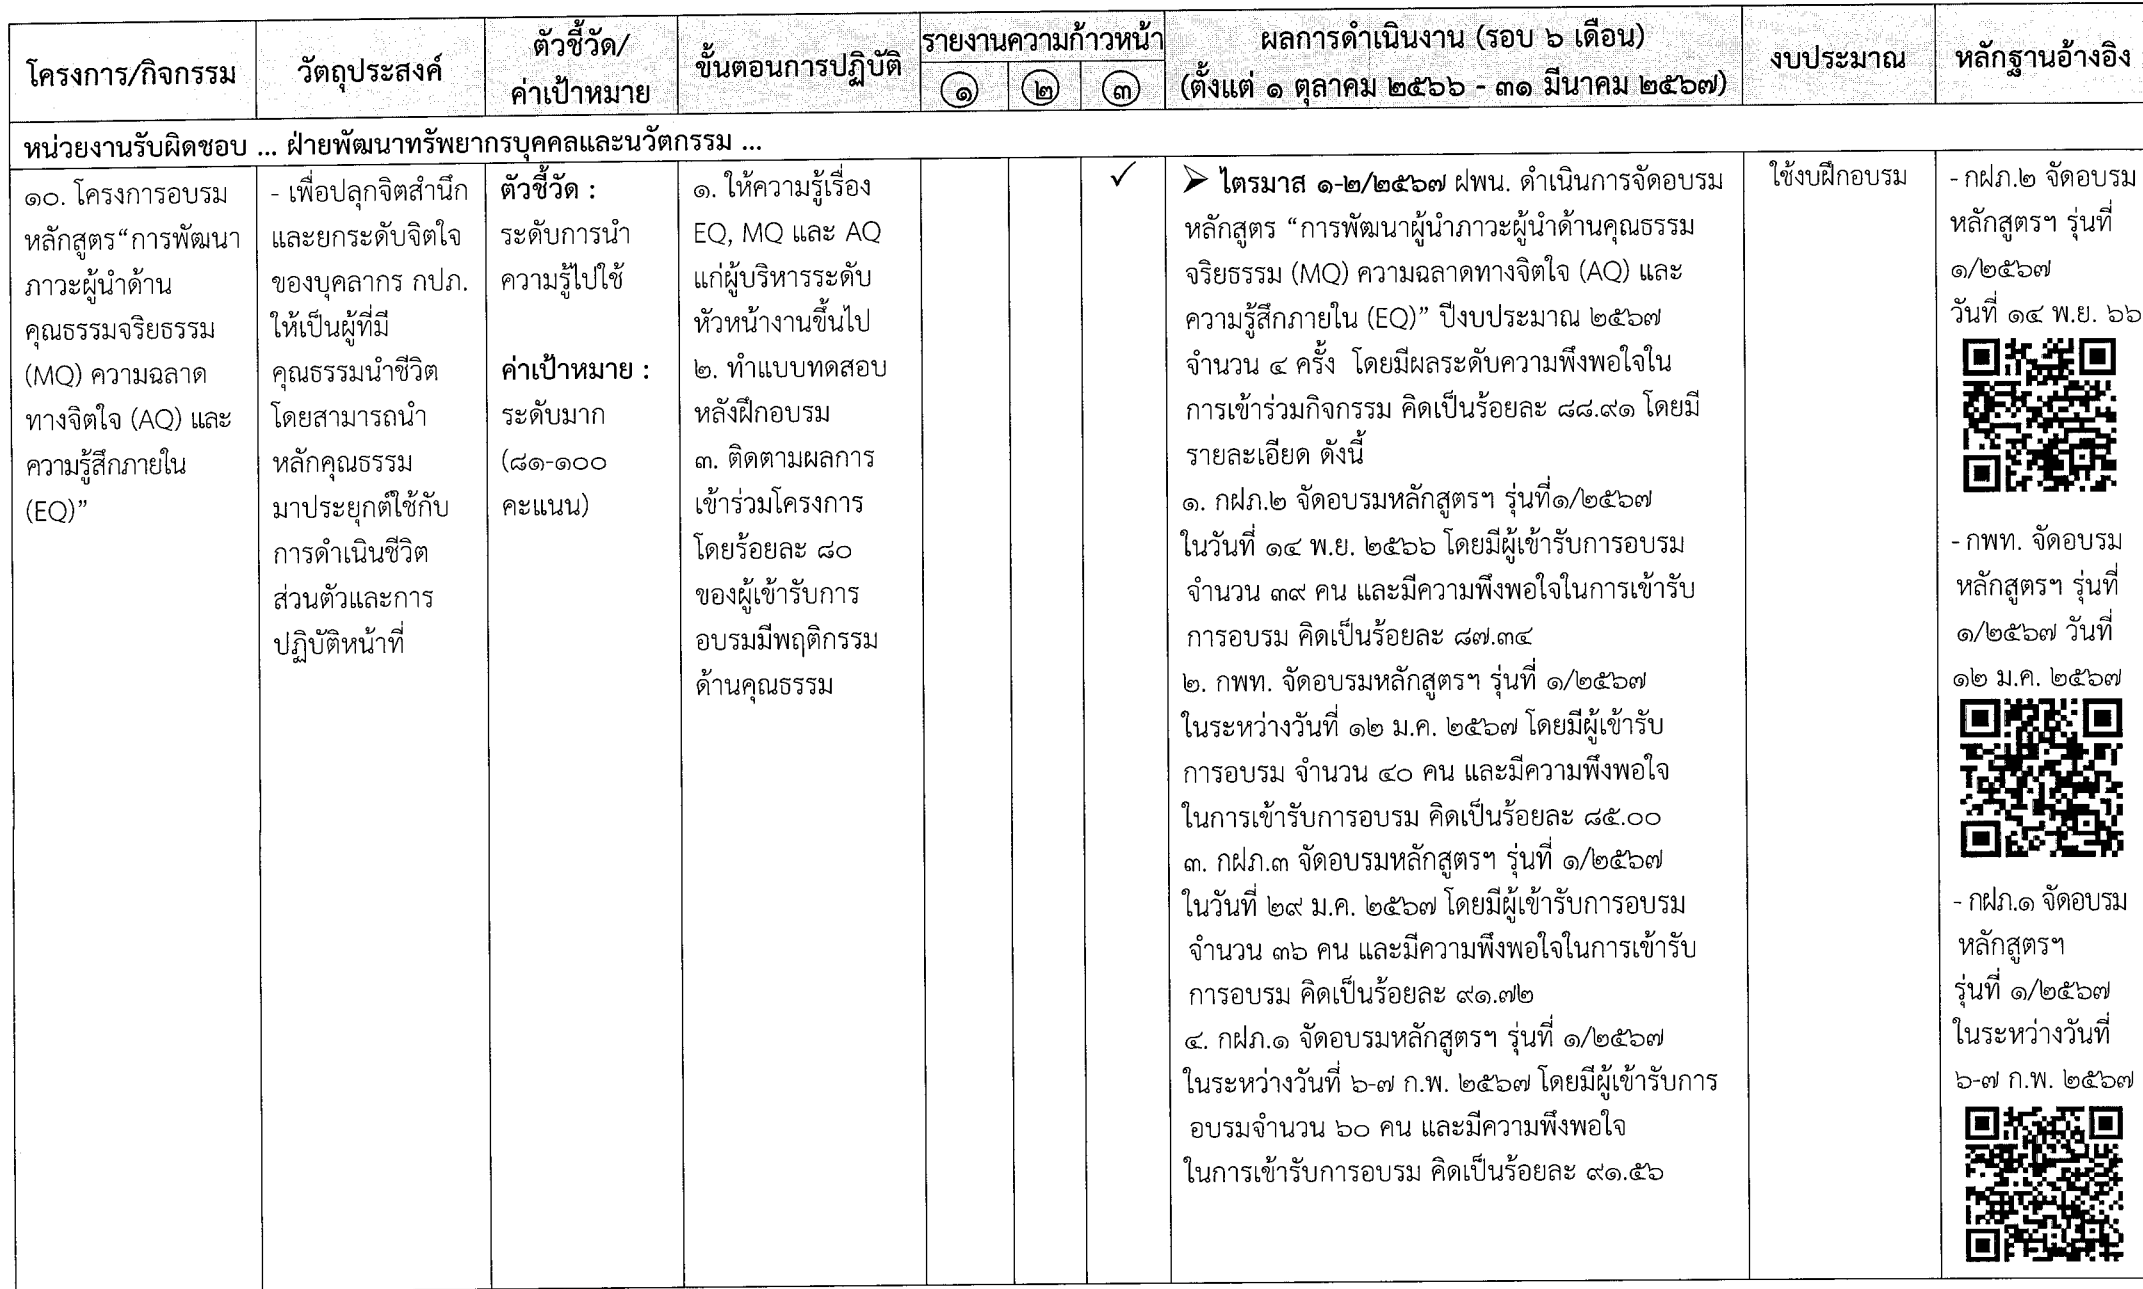 โครงการ/กิจกรรม
วัตถุประสงค์
ตัวชี้วัด/
ค่าเป้าหมาย
ขั้นตอนการปฏิบัติ
รายงานความก้าวหน้า
๑ ๒ ๓
ผลการดำเนินงาน (รอบ ๖ เดือน)
(ตั้งแต่ ๑ ตุลาคม ๒๕๖๖ - ๓๑ มีนาคม ๒๕๖๗)
งบประมาณ
หลักฐานอ้างอิง
หน่วยงานรับผิดชอบ ... ฝ่ายพัฒนาทรัพยากรบุคคลและนวัตกรรม ...
๑๐. โครงการอบรม
หลักสูตร“การพัฒนา
ภาวะผู้นำด้าน
คุณธรรมจริยธรรม
(MQ) ความฉลาด
ทางจิตใจ (AQ) และ
ความรู้สึกภายใน
(EQ)”
- เพื่อปลุกจิตสำนึก
และยกระดับจิตใจ
ของบุคลากร กปภ.
ให้เป็นผู้ที่มี
คุณธรรมนำชีวิต
โดยสามารถนำ
หลักคุณธรรม
มาประยุกต์ใช้กับ
การดำเนินชีวิต
ส่วนตัวและการ
ปฏิบัติหน้าที่
ตัวชี้วัด :
ระดับการนำ
ความรู้ไปใช้
ค่าเป้าหมาย :
ระดับมาก
(๘๑-๑๐๐
คะแนน)
๑. ให้ความรู้เรื่อง
EQ, MQ และ AQ
แก่ผู้บริหารระดับ
หัวหน้างานขึ้นไป
๒. ทำแบบทดสอบ
หลังฝึกอบรม
๓. ติดตามผลการ
เข้าร่วมโครงการ
โดยร้อยละ ๘๐
ของผู้เข้ารับการ
อบรมมีพฤติกรรม
ด้านคุณธรรม
✓
➢ ไตรมาส ๑-๒/๒๕๖๗ ฝพน. ดำเนินการจัดอบรม
หลักสูตร “การพัฒนาผู้นำภาวะผู้นำด้านคุณธรรม
จริยธรรม (MQ) ความฉลาดทางจิตใจ (AQ) และ
ความรู้สึกภายใน (EQ)” ปีงบประมาณ ๒๕๖๗
จำนวน ๔ ครั้ง โดยมีผลระดับความพึงพอใจใน
การเข้าร่วมกิจกรรม คิดเป็นร้อยละ ๘๘.๙๑ โดยมี
รายละเอียด ดังนี้
๑. กฝภ.๒ จัดอบรมหลักสูตรฯ รุ่นที่๑/๒๕๖๗
ในวันที่ ๑๔ พ.ย. ๒๕๖๖ โดยมีผู้เข้ารับการอบรม
จำนวน ๓๙ คน และมีความพึงพอใจในการเข้ารับ
การอบรม คิดเป็นร้อยละ ๘๗.๓๔
๒. กพท. จัดอบรมหลักสูตรฯ รุ่นที่ ๑/๒๕๖๗
ในระหว่างวันที่ ๑๒ ม.ค. ๒๕๖๗ โดยมีผู้เข้ารับ
การอบรม จำนวน ๔๐ คน และมีความพึงพอใจ
ในการเข้ารับการอบรม คิดเป็นร้อยละ ๘๕.๐๐
๓. กฝภ.๓ จัดอบรมหลักสูตรฯ รุ่นที่ ๑/๒๕๖๗
ในวันที่ ๒๙ ม.ค. ๒๕๖๗ โดยมีผู้เข้ารับการอบรม
จำนวน ๓๖ คน และมีความพึงพอใจในการเข้ารับ
การอบรม คิดเป็นร้อยละ ๙๑.๗๒
๔. กฝภ.๑ จัดอบรมหลักสูตรฯ รุ่นที่ ๑/๒๕๖๗
ในระหว่างวันที่ ๖-๗ ก.พ. ๒๕๖๗ โดยมีผู้เข้ารับการ
อบรมจำนวน ๖๐ คน และมีความพึงพอใจ
ในการเข้ารับการอบรม คิดเป็นร้อยละ ๙๑.๕๖
ใช้งบฝึกอบรม
- กฝภ.๒ จัดอบรม
หลักสูตรฯ รุ่นที่
๑/๒๕๖๗
วันที่ ๑๔ พ.ย. ๖๖
- กพท. จัดอบรม
หลักสูตรฯ รุ่นที่
๑/๒๕๖๗ วันที่
๑๒ ม.ค. ๒๕๖๗
- กฝภ.๑ จัดอบรม
หลักสูตรฯ
รุ่นที่ ๑/๒๕๖๗
ในระหว่างวันที่
๖-๗ ก.พ. ๒๕๖๗